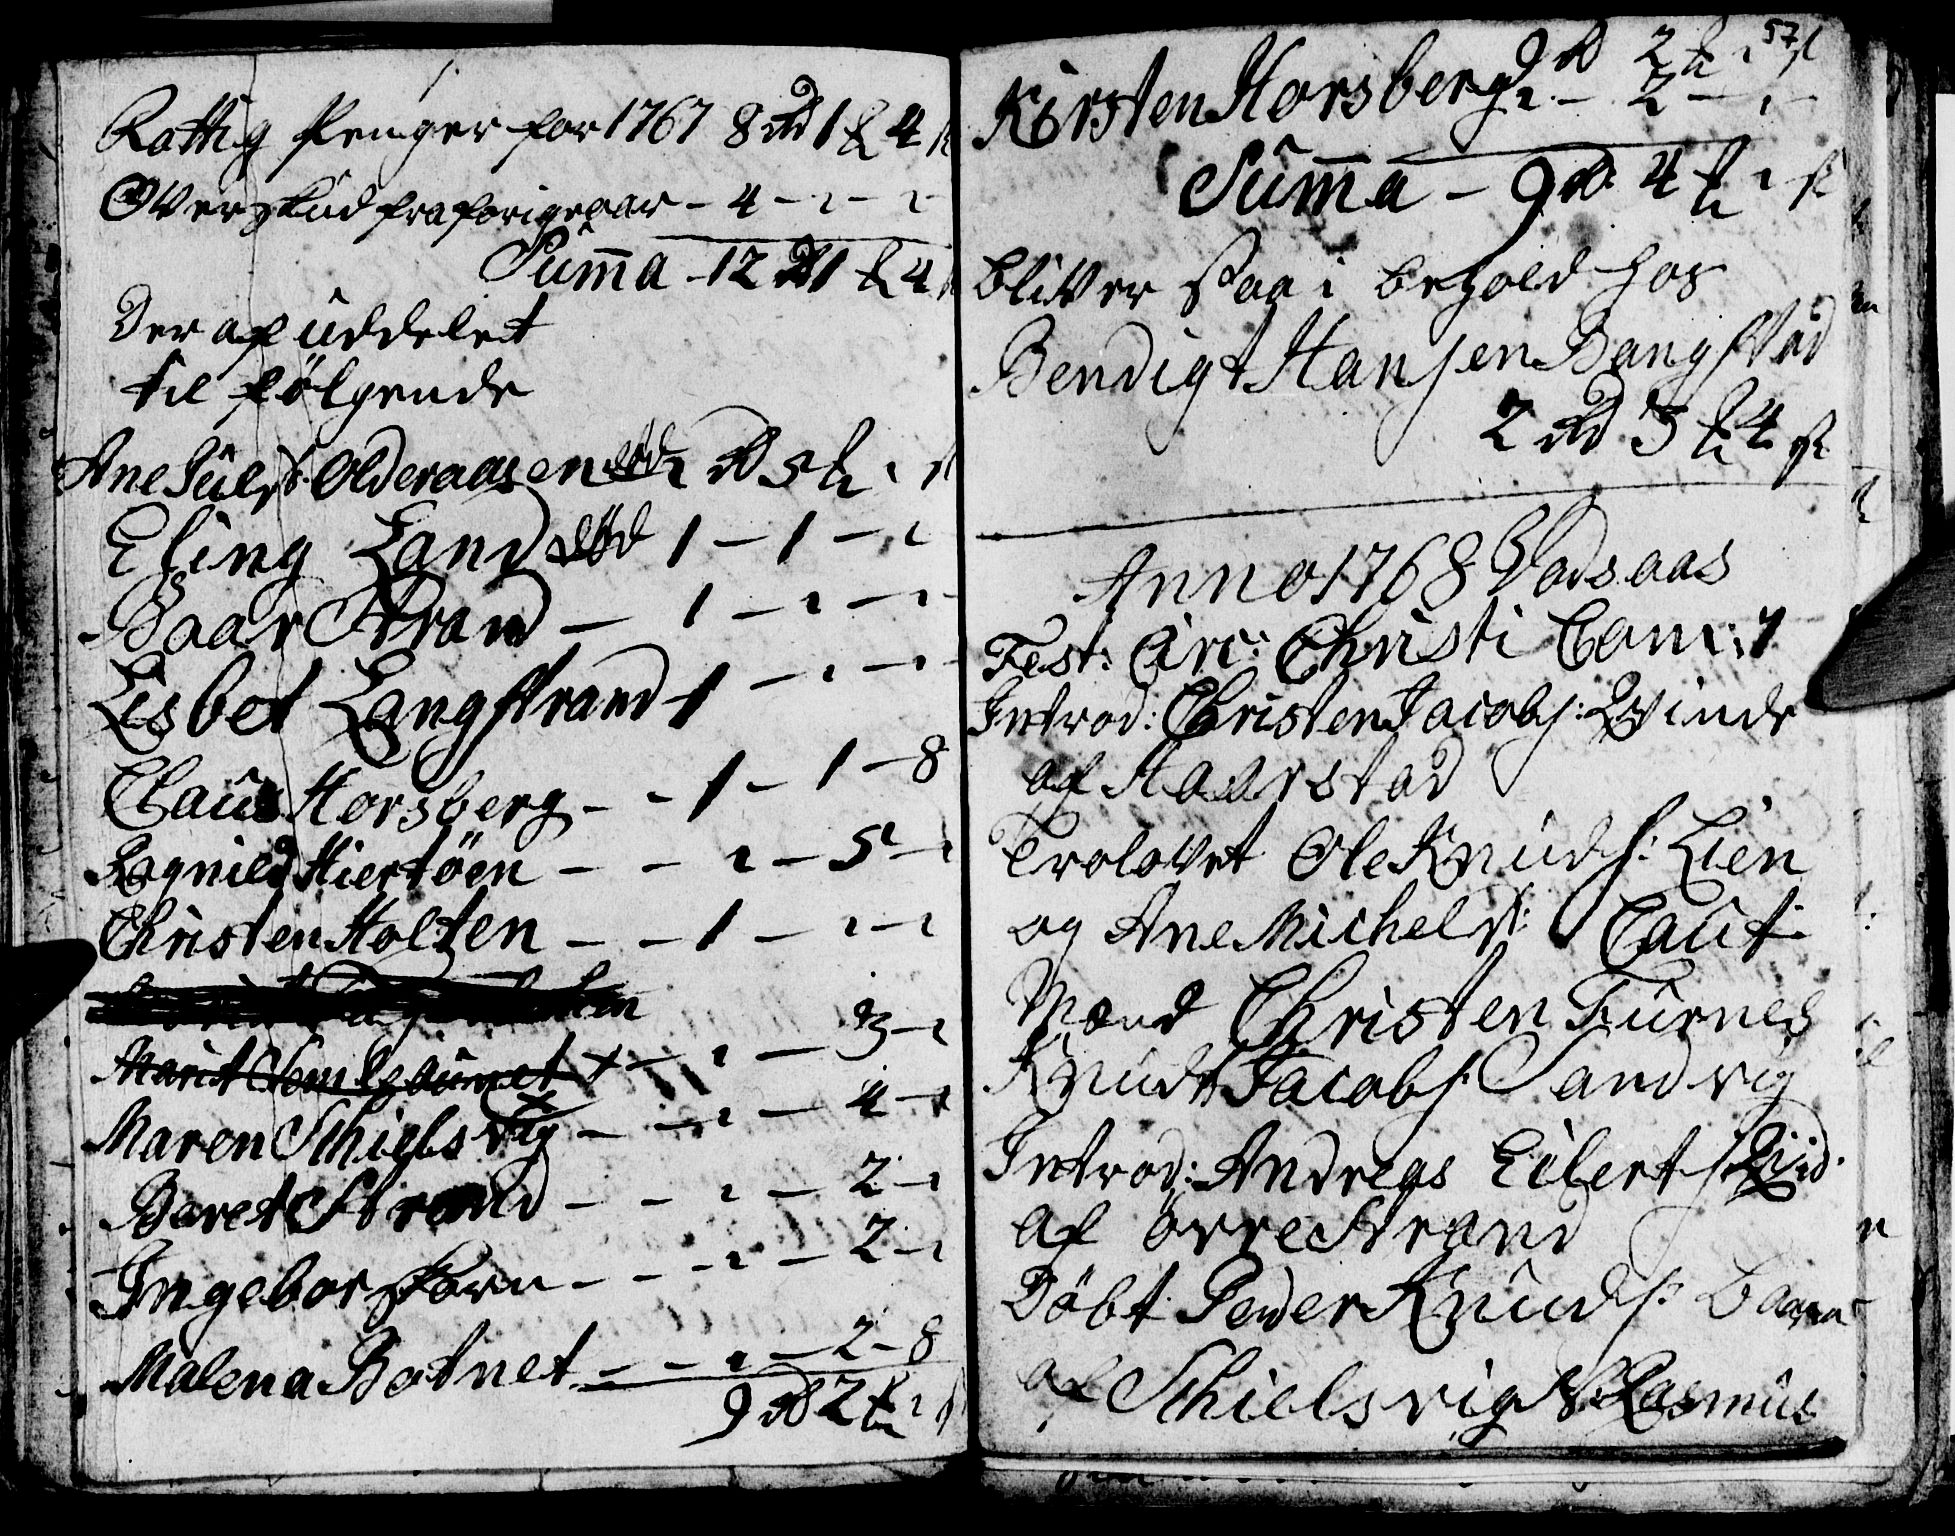 Fattig Penger for 1767 8 rd 1 & 4 s
Overskud fra forige aar - 4 - " - "
Summa - 12 rd 1 & 4 s
Der af uddelet
til følgende
Ane Juls Olderaasen død 1 rd 5 & " s
Eling Land død 1 - 1 - "
Baar Strand - 1 - " - "
Lisbet Langstrand - 1 - " - "
Claus Horsberg - - 1 - 1 - 8
Ragnild Hiertøen - - " - 5 - "
Christen Holten - - 1 - " - "
Marit Aunet + - " - 3 - "
Maren Schielsvig - - " - 4 - "
Baret Strand - - " - 2 - "
Ingebor - - " - 2 - "
Malena Botnet - - " - 2 - 8
9 rd 2 & " s
57
9 rd 2 & " s
Kirsten Horsberg " - 2 - " -
Summa - 9 rd 4 & " s
bliver saa i behold hos
Bendigt Hansen Bangstad
2 rd 3 & 4 s
Anno 1768 Vadsaas
Fest: Circ: Christi Com: 4
Introd: Christen Jacobs: Qvinde
af Haarstad
Trolovet Ole Knuds: Lien
og Ane Michelsd: Caut:
Mænd Christen Furnes
Knudt Jacobs: Sandvig
Introd: Andreas Eilerts Qvid:
af ørre Strand
Döbt Peder Knuds: barn
af Schielsvig N: Rasmus